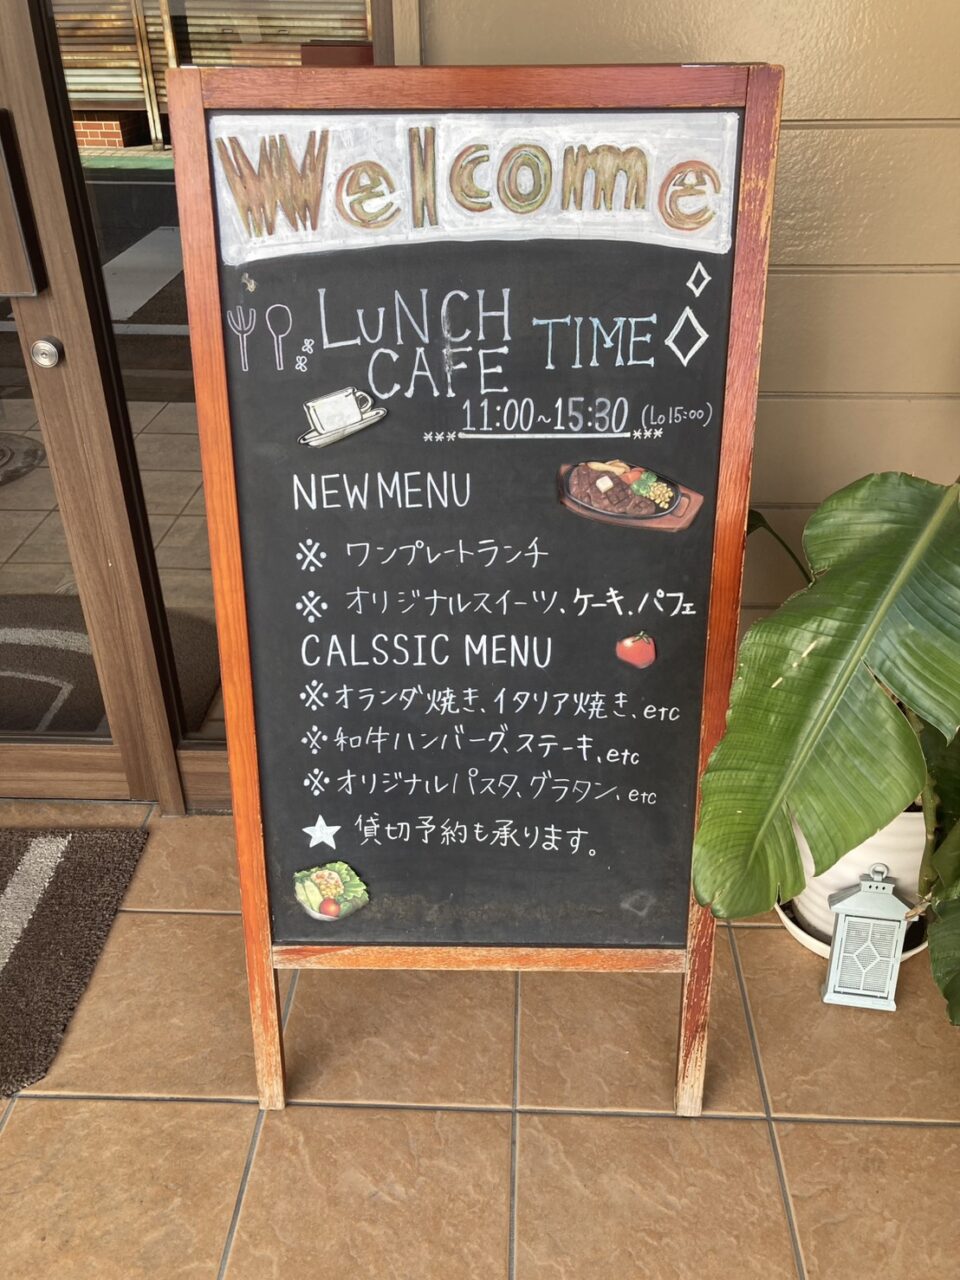 Welcome
LUNCH
CAFE TIME
11:00~15:30 (Lo15:00)
NEW MENU
※ ワンプレートランチ
※ オリジナルスイーツ、ケーキ、パフェ
CALSSIC MENU
※オランダ焼き、イタリア焼き、etc
※和牛ハンバーグ、ステーキ、etc
※オリジナルパスタ、グラタン、etc
★ 貸切予約も承ります。